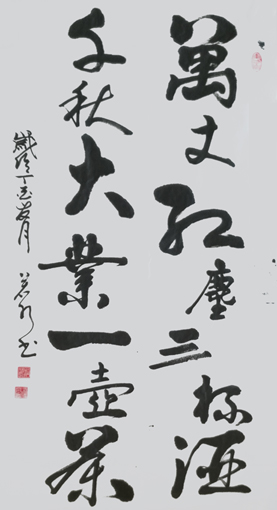 萬丈红塵三杯酒
千秋大業一壺茶
歲次丁亥
月
书